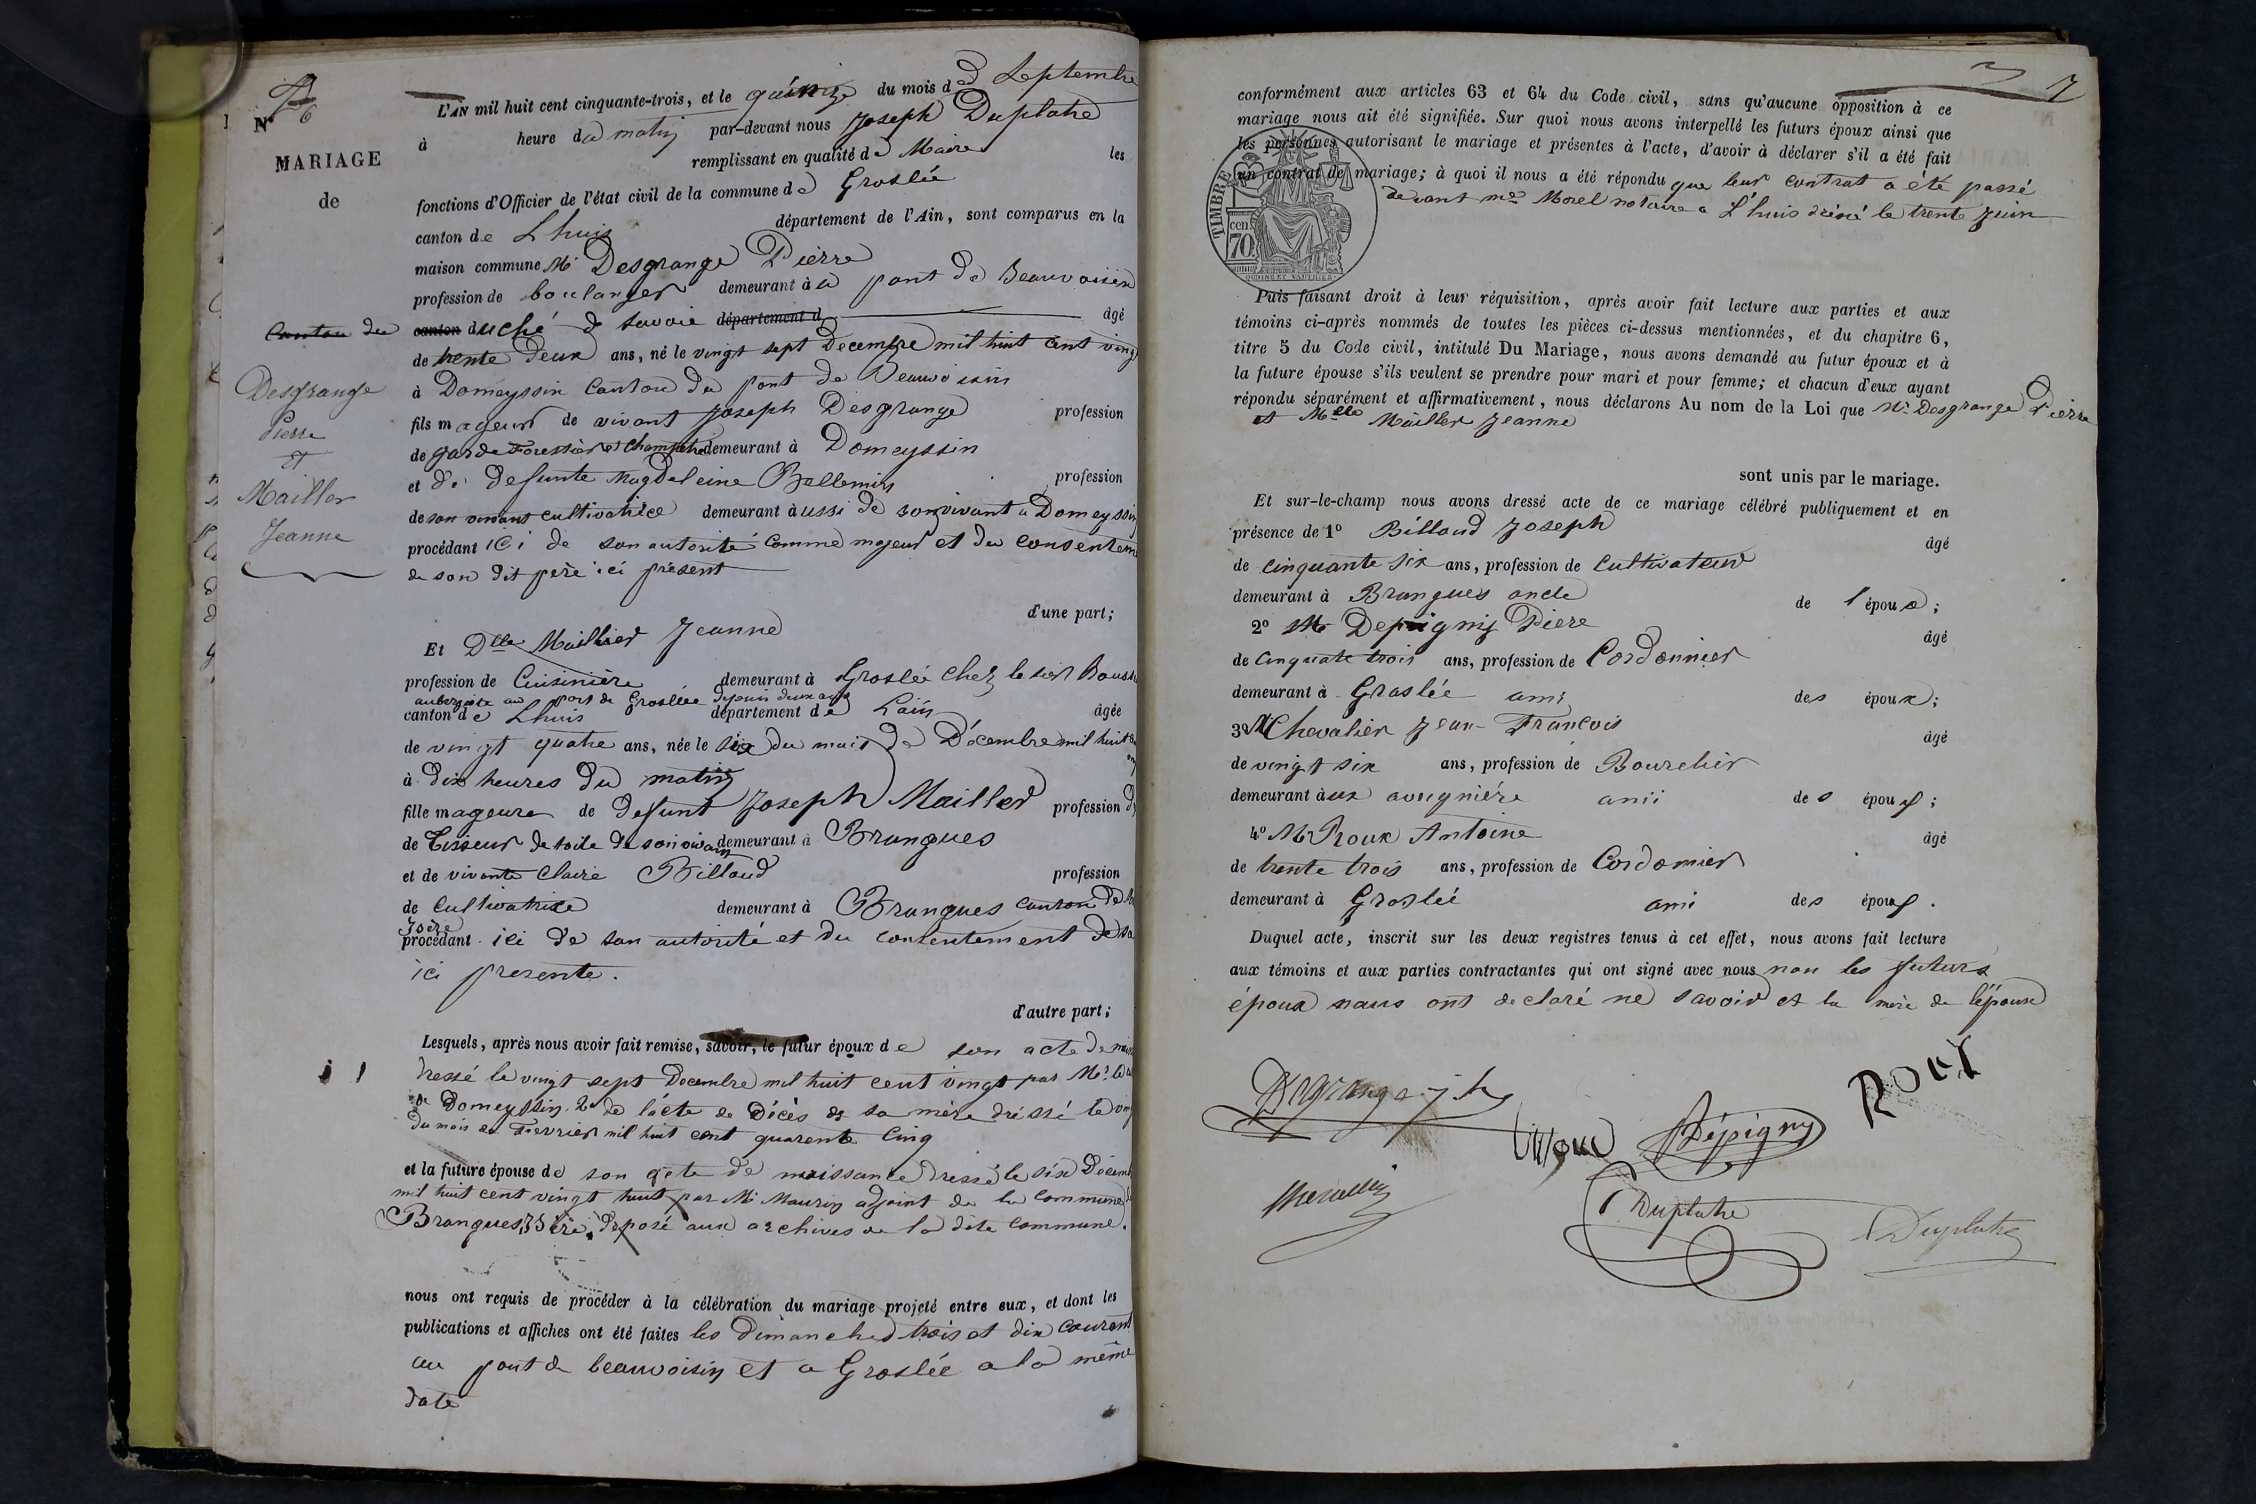 N° 6
MARIAGE
de
Canton du
Desgrange
Pierre
et
Mailler
Jeanne
L'AN mil huit cent cinquante-trois, et le quinze du mois de Septembre
à heure du matin par-devant nous Joseph Duplatre
remplissant en qualité de Maire les
fonctions d'Officier de l'état civil de la commune de Groslée
canton de Lhuis département de l'Ain, sont comparus en la
maison commune Mr Desgrange Pierre
profession de boulanger demeurant à a pont de Beauvoisin
canton duché de savoie département d âgé
de trente deux ans, né le vingt sept Decembre mil huit cent vingt
à Domeyssin Canton du pont de Beauvoisin
fils mageur de vivant Joseph Desgrange profession
de garde Forestier et Champetre demeurant à Domeyssin
et de defunte Magdeleine Bellemin profession
de son vivant cultivatrice demeurant aussi de son vivant a Domeyssin
procédant ici de son autorité comme majeur et du consentem
de son dit père ici présent
d'une part;
Et Dlle Mailler Jeanne
profession de Cuisinière demeurant à Groslée chez le sieur
aubergiste au port de Groslée depuis deux ans
canton de Lhuis département de Lain âgée
de vingt quatre ans, née le six du mois de Décembre mil huit
à dix heures du matin
fille mageure de defunt Joseph Mailler profession
de Tisseur de toile de son vivant demeurant à Brangues
et de vivante Claire Billoud profession
de Cultivatrice demeurant à Brangues canton de
Isère
procédant ici de son autorité et du consentement de sa
ici presente.
d'autre part;
Lesquels, après nous avoir fait remise, savoir, le futur époux de son acte de
dressé le vingt sept Decembre mil huit cent vingt par Mr le
de Domeyssin 2° de l'acte de Décès de sa mère dréssé le
du mois de Fevrier mil huit cent quarente cinq
et la future épouse de son acte de naissance dressé le six Décem
mil huit cent vingt huit par Mr Maurin adjoint de la Commune
Brangues Isère, déposé aux archives de la dite Commune.
nous ont requis de procéder à la célébration du mariage projeté entre eux, et dont les
publications et affiches ont été faites les Dimanches trois et dix courant
au pont de beauvoisin et a Groslée a la même
date
7
conformément aux articles 63 et 64 du Code civil, sans qu'aucune opposition à ce
mariage nous ait été signifiée. Sur quoi nous avons interpellé les futurs époux ainsi que
les personnes autorisant le mariage et présentes à l'acte, d'avoir à déclarer s'il a été fait
un contrat de mariage; à quoi il nous a été répondu que leur contrat a été passé
devant me Morel notaire a Lhuis le trente Juin
TIMBRE
cen
70
Puis faisant droit à leur réquisition, après avoir fait lecture aux parties et aux
témoins ci-après nommés de toutes les pièces ci-dessus mentionnées, et du chapitre 6,
titre 5 du Code civil, intitulé Du Mariage, nous avons demandé au futur époux et à
la future épouse s'ils veulent se prendre pour mari et pour femme; et chacun d'eux ayant
répondu séparément et affirmativement, nous déclarons Au nom de la Loi que Mr Desgrange Pierre
et Melle Mailler Jeanne
sont unis par le mariage.
Et sur-le-champ nous avons dressé acte de ce mariage célébré publiquement et en
présence de 1° Billoud Joseph âgé
de cinquante six ans, profession de Cultivateur
demeurant à Brangues oncle de l'épouse;
2° Mr Depigny Piere âgé
de Cinquate trois ans, profession de Cordonnier
demeurant à Groslée ami des époux;
3° Mr Chevalier Jean Francois âgé
de vingt six ans, profession de Bourelier
demeurant aux avugniére ami des époux;
4° Mr Roux Antoine âgé
de trente trois ans, profession de Cordonnier
demeurant à Groslée ami des époux.
Duquel acte, inscrit sur les deux registres tenus à cet effet, nous avons fait lecture
aux témoins et aux parties contractantes qui ont signé avec nous non les futurs
époux nous ont declaré ne savoir et la mère de l'épouse
Dépigny
Roux
Duplatre
Duplatre